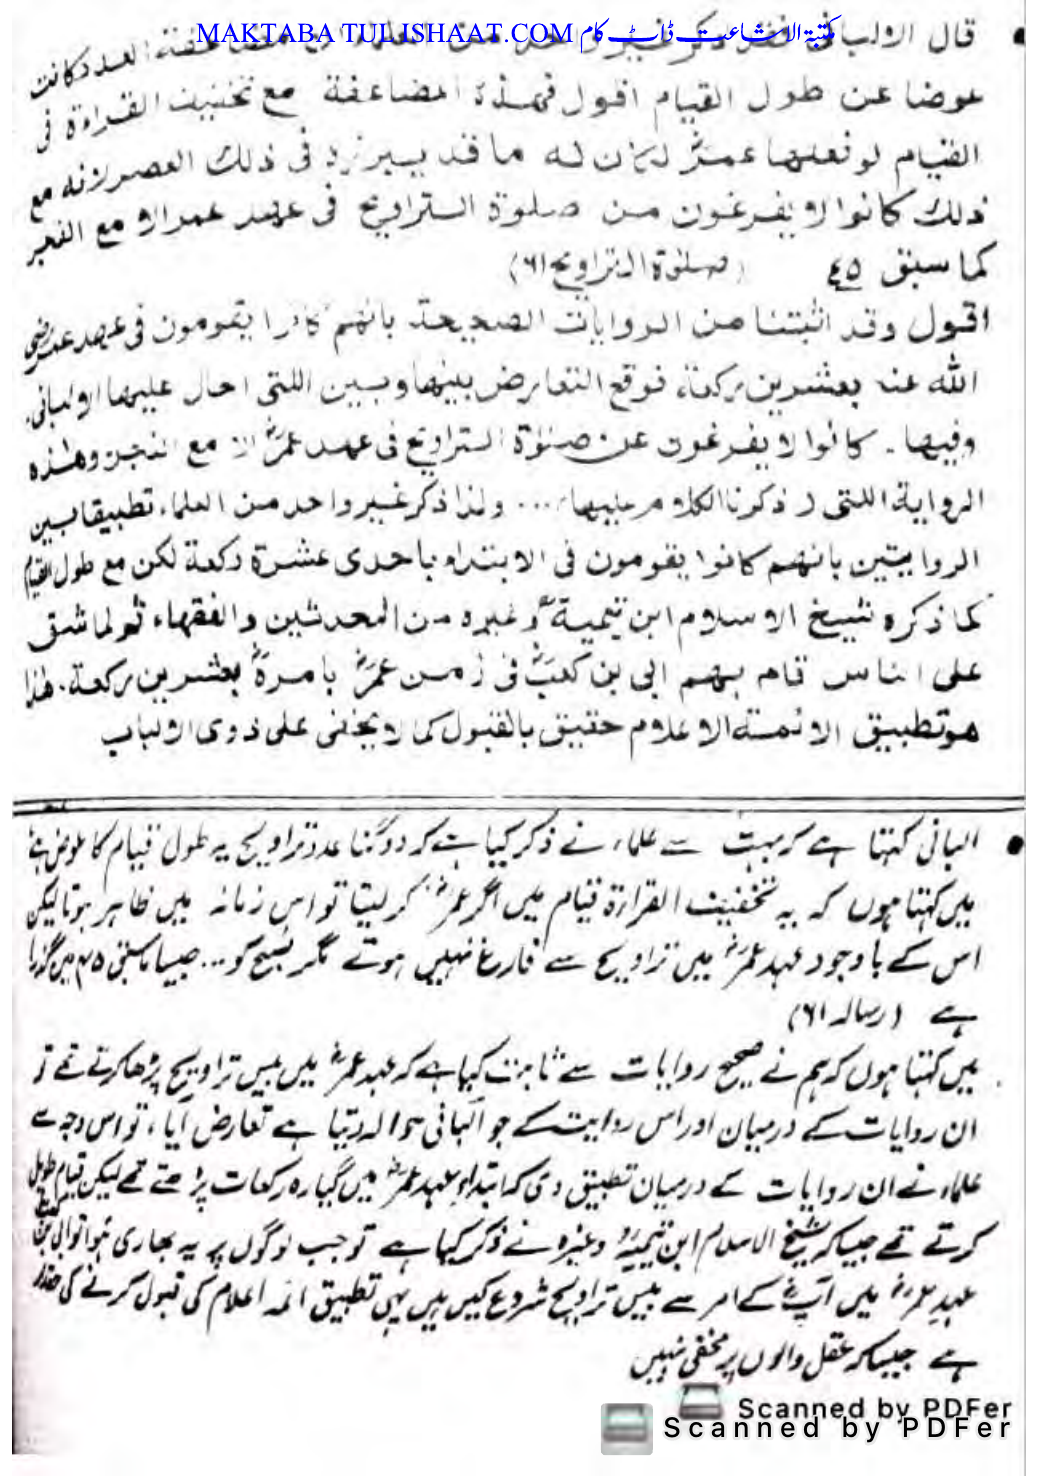 MAKTABA TULISHAAT.COM مکتبۃ الاشاعت ڈاٹ کام
قال الالبانی فقد ذکر غیر واحد من العلماء مضاعفة العدد کانت
عوضا عن طول القیام اقول فهذه المضاعفة مع تخفیف القراءة فی
القیام لو فعلها عمرؓ لکان له ما قد یبرره فی ذلك العصر لانه مع
ذلك کانوا لا یفرغون من صلوة التراویح فی عهد عمر الا مع الفجر
کما سبق ٤٥ (صلوة التراویح ٦١)
اقول وقد اثبتنا من الروایات الصحیحة بانهم کانوا یقومون فی عهد عمر رضی
الله عنه بعشرین رکعة، فوقع التعارض بینها وبین اللتی احال علیها الالبانی.
وفیها۔ کانوا لا یفرغون عن صلوة التراویح فی عهد عمرؓ الا مع الفجر، وهذه
الروایة اللتی ذکرنا الکلام علیها ... ولذا ذکر غیر واحد من العلماء تطبیقا بین
الروایتین بانهم کانوا یقومون فی الابتداء باحدی عشرة رکعة لکن مع طول القیام
کما ذکره شیخ الاسلام ابن تیمیةؒ وغیره من المحدثین والفقهاء ثم لما شق
علی الناس قام بهم ابی بن کعبؓ فی زمن عمرؓ بامرهؓ بعشرین رکعة. هذا
هو تطبیق الائمة الاعلام حقیق بالقبول کما لا یخفی علی ذوی الالباب
البانی کہتا ہے کہ بہت سے علماء نے ذکر کیا ہے کہ دوگنا عدد تراویح یہ طول قیام کا عوض ہے
میں کہتا ہوں کہ یہ تخفیف القراءۃ قیام میں اگر عمرؓ کر لیتا تو اس زمانہ میں ظاہر ہوتا لیکن
اس کے باوجود عہد عمرؓ میں تراویح سے فارغ نہیں ہوتے مگر صبح کو... جیسا کہ ص ۴۵ میں گزرا
ہے (رسالہ ۶۱)
میں کہتا ہوں کہ ہم نے صحیح روایات سے ثابت کیا ہے کہ عہد عمرؓ میں بیس تراویح پڑھا کرتے تھے تو
ان روایات کے درمیان اور اس روایت کے جو البانی حوالہ دیتا ہے تعارض آیا، تو اس وجہ سے
علماء نے ان روایات کے درمیان تطبیق دی کہ ابتداءِ عہد عمرؓ میں گیارہ رکعات پڑھتے تھے لیکن قیام طویل
کرتے تھے جیسا کہ شیخ الاسلام ابن تیمیہؒ وغیرہ نے ذکر کیا ہے تو جب لوگوں پر یہ بھاری ہوا تو ابی بن کعبؓ
عہدِ عمرؓ میں آپؓ کے امر سے بیس تراویح شروع کیں ہیں یہی تطبیق ائمہ اعلام کی قبول کرنے کی حقدار
ہے جیسا کہ عقل والوں پر مخفی نہیں
Scanned by PDFer
Scanned by PDFer